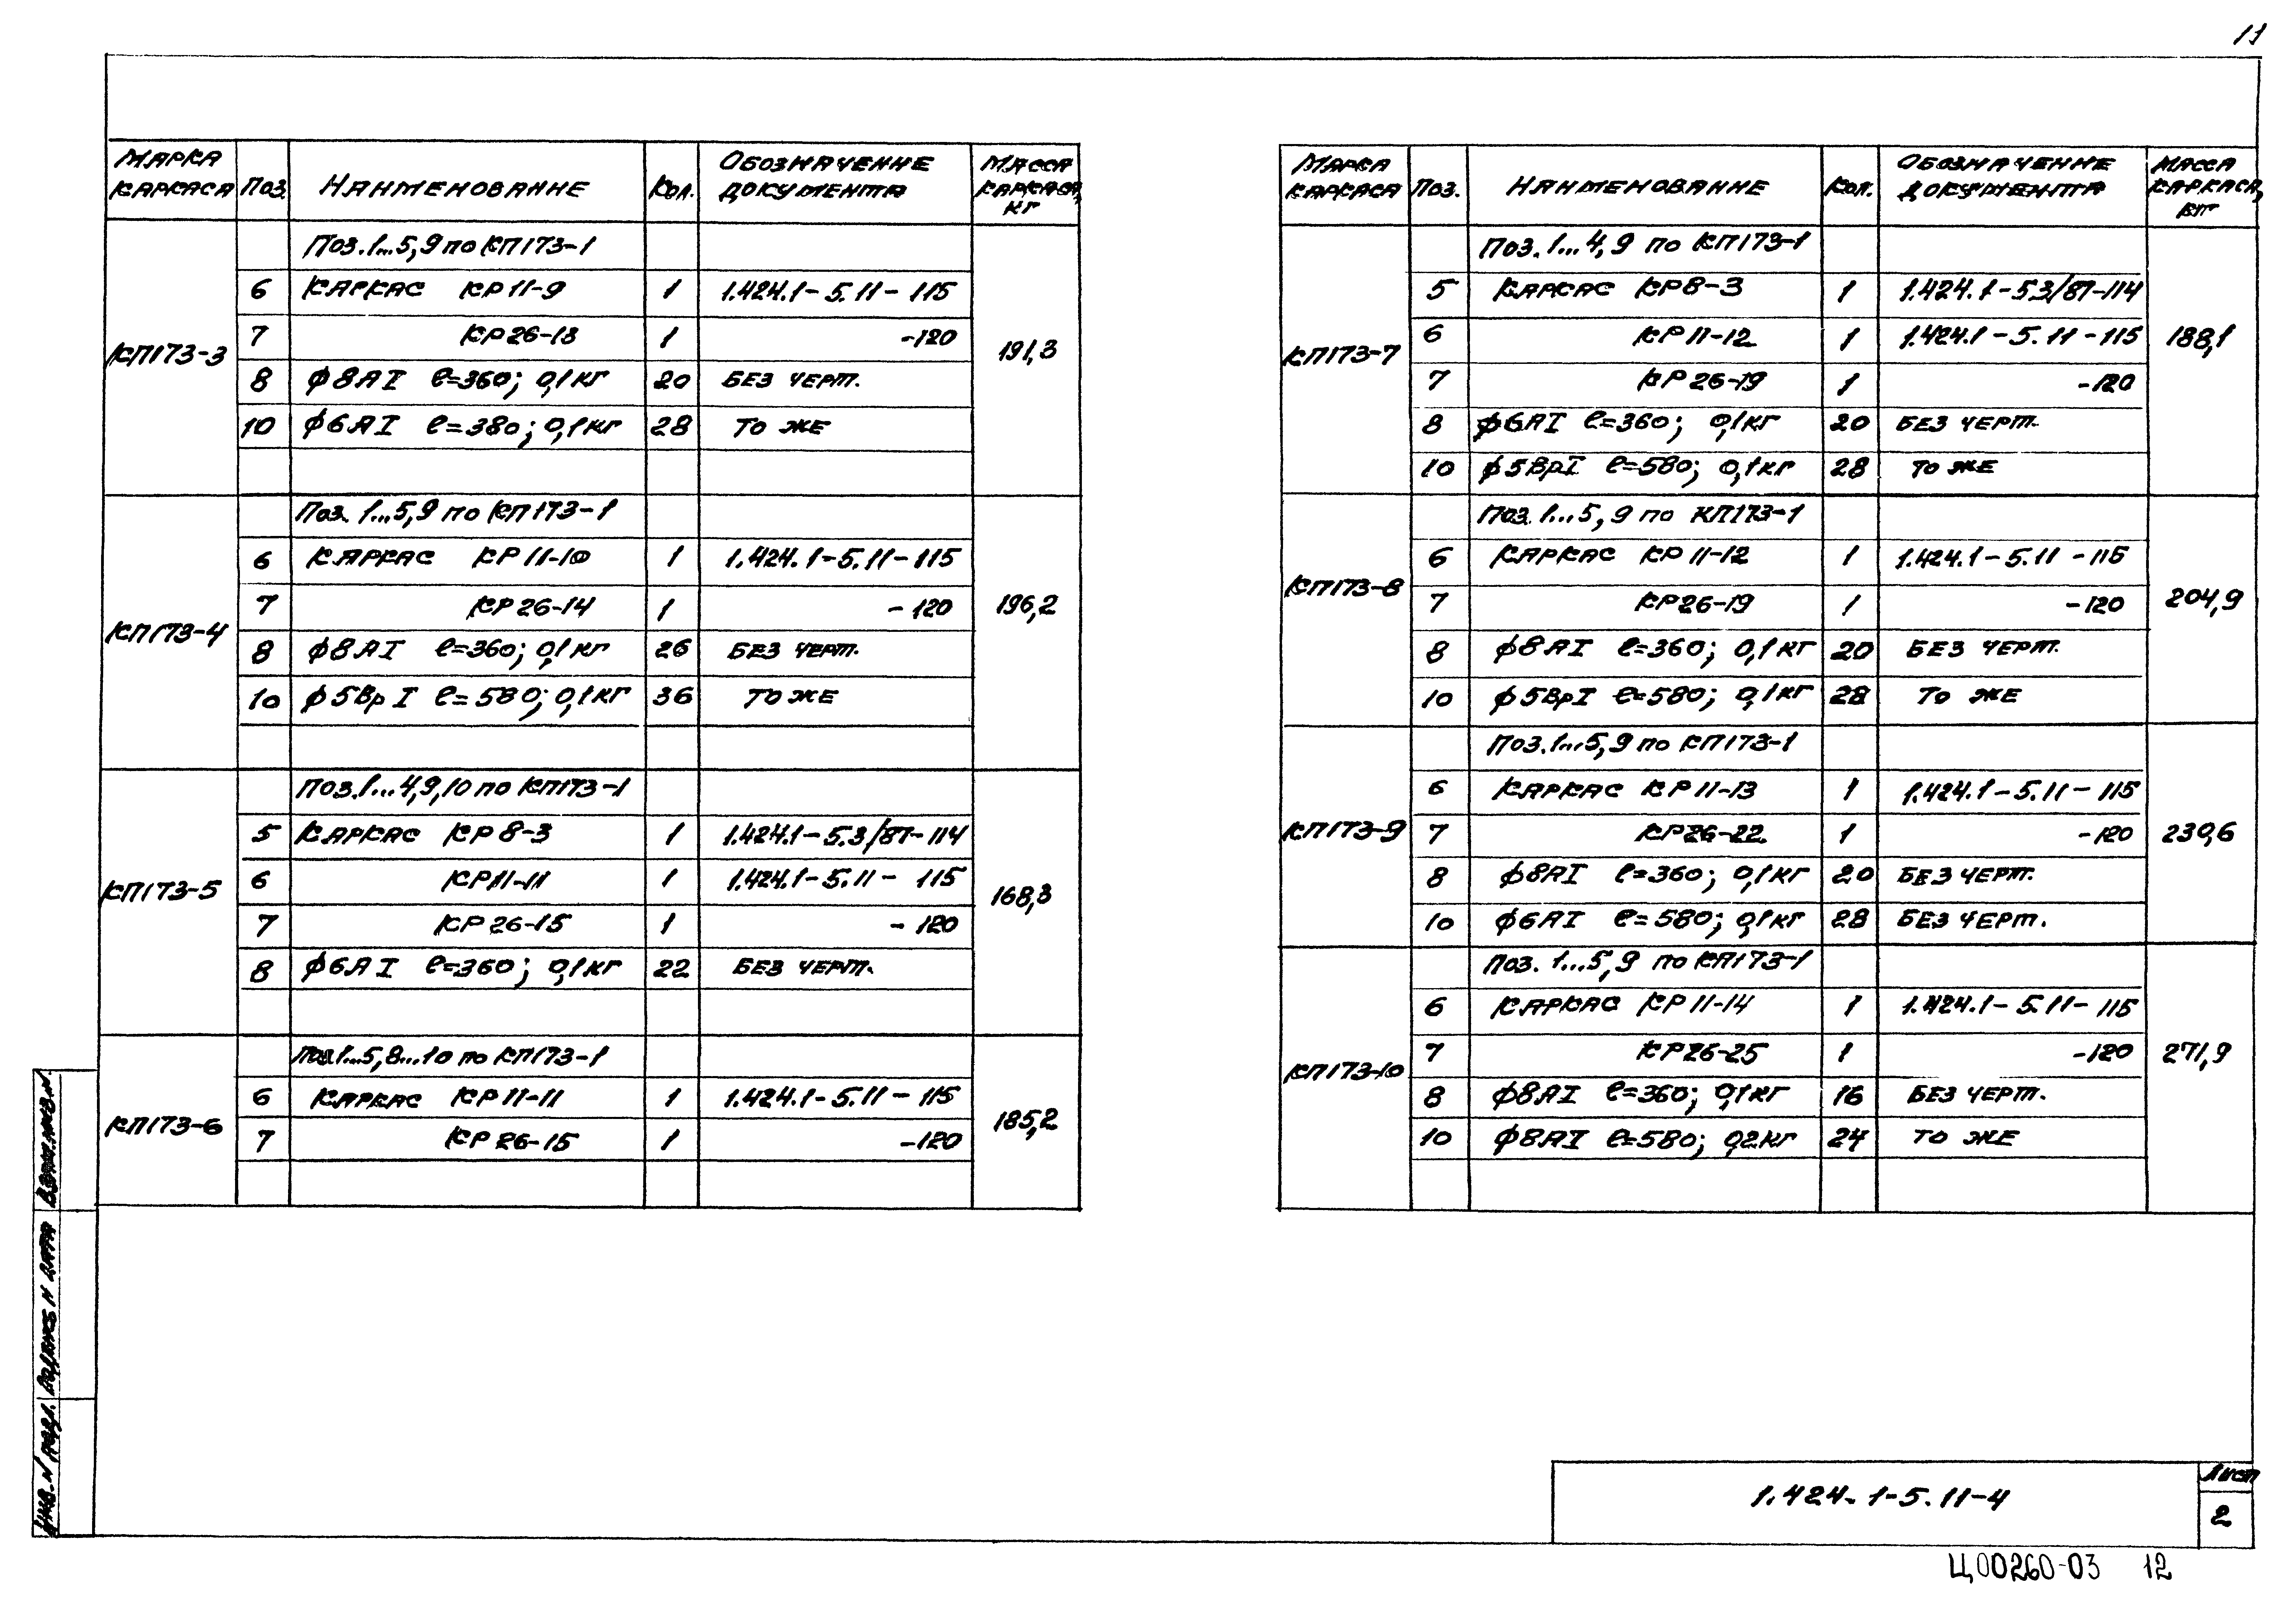 11
Марка каркаса Поз. Наименование Кол. Обозначение документа Масса каркаса, кг
Поз. 1...5, 9 по КП173-1
6 Каркас КР11-9 1 1.424.1-5.11-115
КП173-3 7 КР26-13 1 -120 191,3
8 ф8АI ℓ=360; 0,1кг 20 без черт.
10 ф6АI ℓ=380; 0,1кг 28 то же
Поз. 1...5,9 по КП173-1
6 Каркас КР11-10 1 1.424.1-5.11-115
КП173-4 7 КР26-14 1 -120 196,2
8 ф8АI ℓ=360; 0,1кг 26 без черт.
10 ф5ВрI ℓ=580; 0,1кг 36 то же
Поз. 1...4,9,10 по КП173-1
5 Каркас КР8-3 1 1.424.1-5.3/87-114
КП173-5 6 КР11-11 1 1.424.1-5.11-115 168,3
7 КР26-15 1 -120
8 ф6АI ℓ=360; 0,1кг 22 без черт.
Поз. 1...5, 8...10 по КП173-1
6 Каркас КР11-11 1 1.424.1-5.11-115
КП173-6 7 КР26-15 1 -120 185,2
Марка каркаса Поз. Наименование Кол. Обозначение документа Масса каркаса, кг
Поз. 1...4, 9 по КП173-1
5 Каркас КР8-3 1 1.424.1-5.3/87-114
КП173-7 6 КР11-12 1 1.424.1-5.11-115 188,1
7 КР26-19 1 -120
8 ф6АI ℓ=360; 0,1кг 20 без черт.
10 ф5ВрI ℓ=580; 0,1кг 28 то же
Поз. 1...5, 9 по КП173-1
6 Каркас КР11-12 1 1.424.1-5.11-115
КП173-8 7 КР26-19 1 -120 204,9
8 ф8АI ℓ=360; 0,1кг 20 без черт.
10 ф5ВрI ℓ=580; 0,1кг 28 то же
Поз. 1...5, 9 по КП173-1
6 Каркас КР11-13 1 1.424.1-5.11-115
КП173-9 7 КР26-22 1 -120 230,6
8 ф8АI ℓ=360; 0,1кг 20 без черт.
10 ф6АI ℓ=580; 0,1кг 28 без черт.
Поз. 1...5, 9 по КП173-1
6 Каркас КР11-14 1 1.424.1-5.11-115
КП173-10 7 КР26-25 1 -120 271,9
8 ф8АI ℓ=360; 0,1кг 16 без черт.
10 ф8АI ℓ=580; 0,2кг 24 то же
Инв.N подл. Подпись и дата Взам.инв.N
1.424.1-5.11-4
Лист
2
Ц00260-03 12